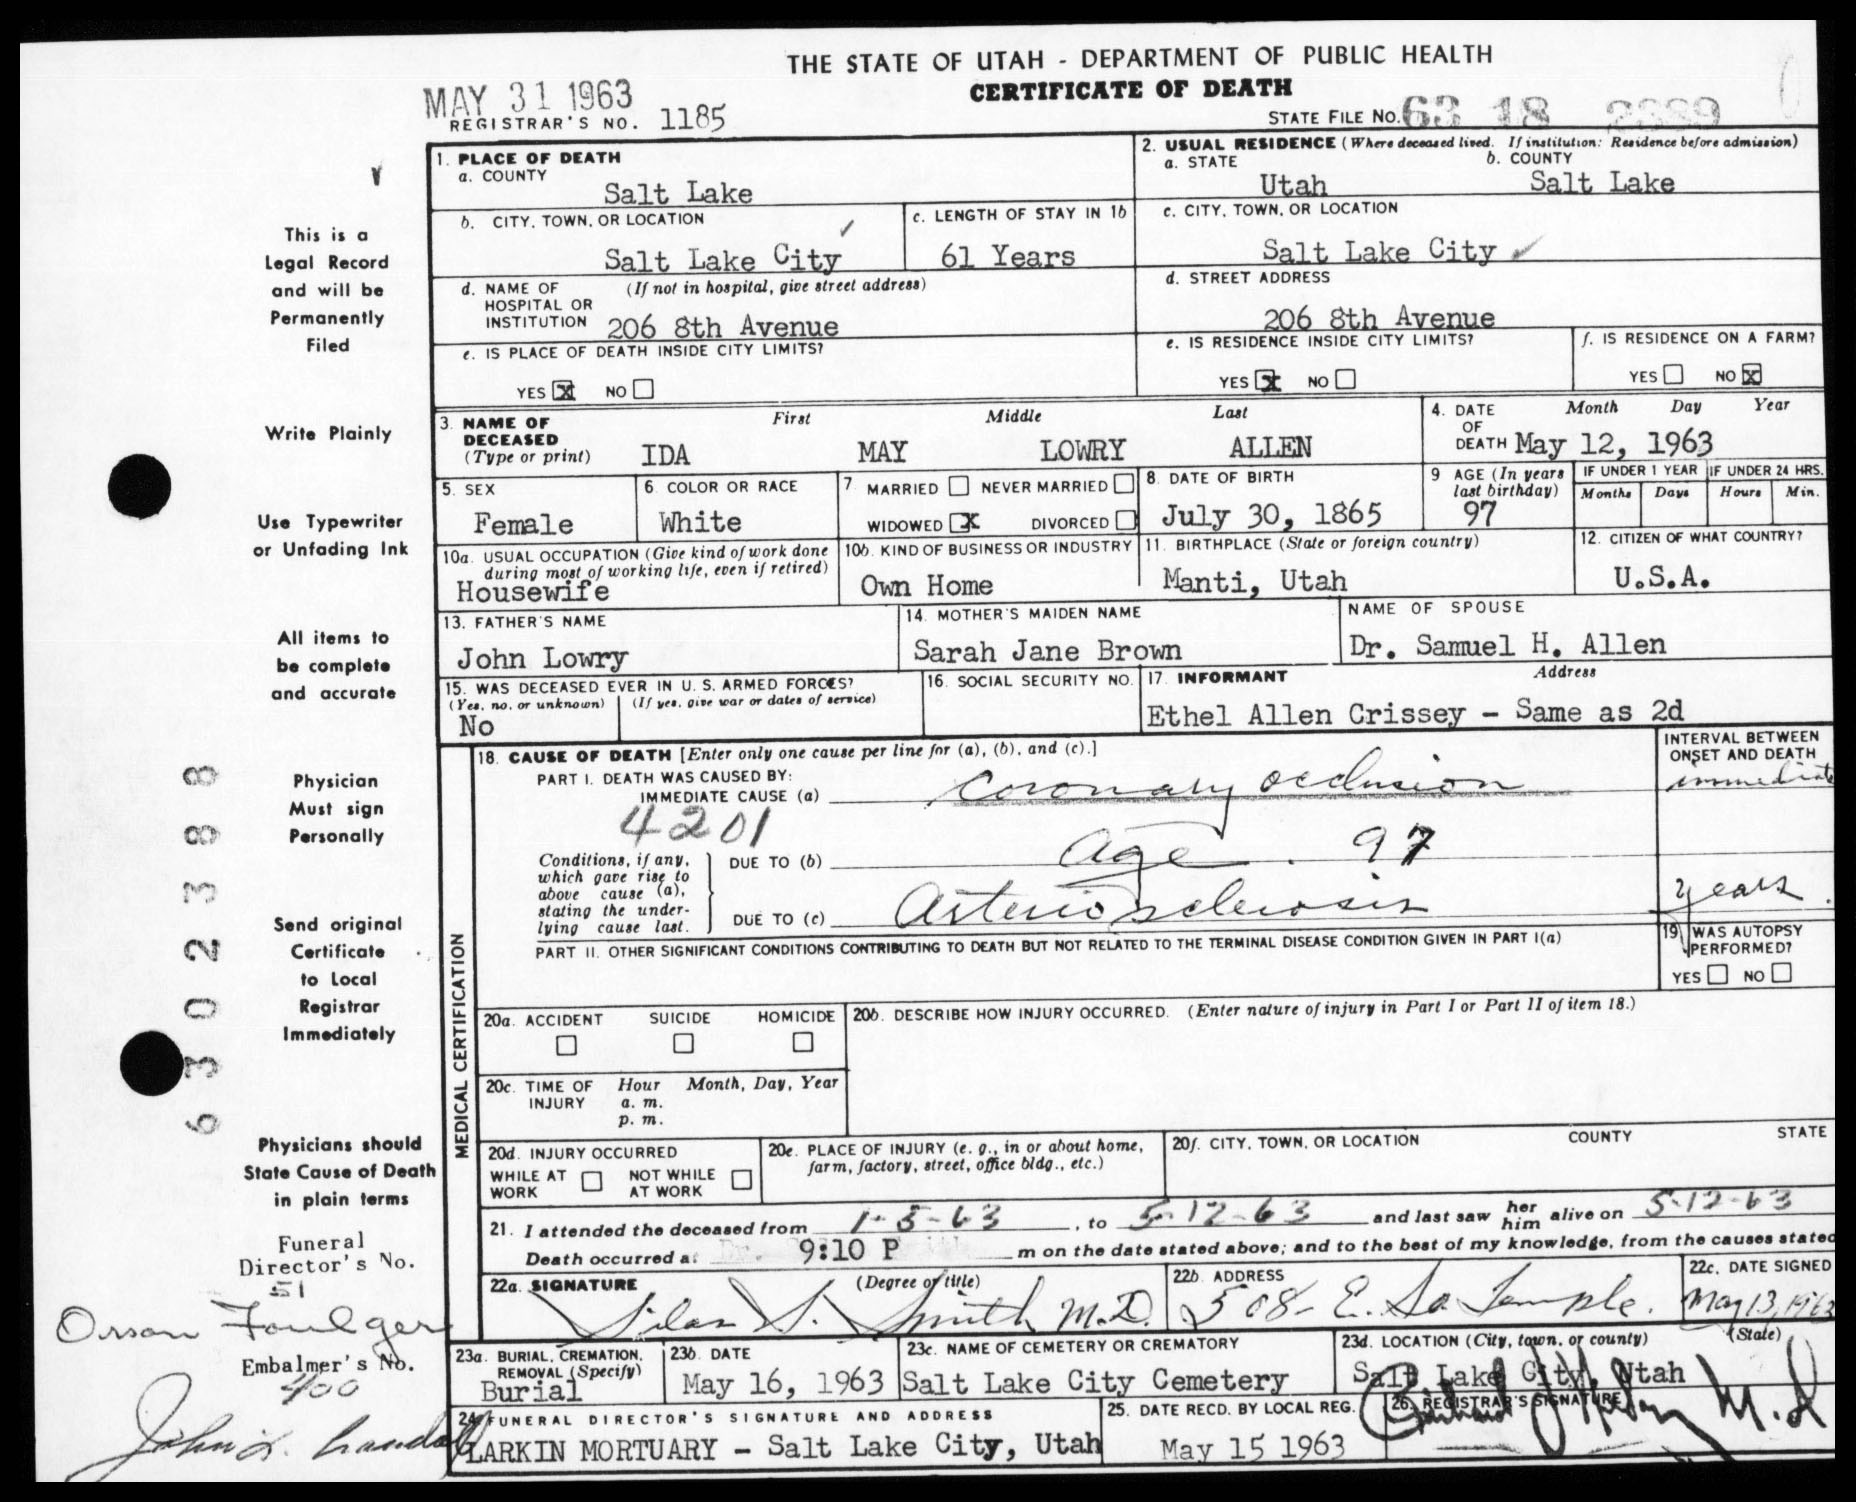 THE STATE OF UTAH - DEPARTMENT OF PUBLIC HEALTH
CERTIFICATE OF DEATH
MAY 31 1963
REGISTRAR'S NO. 1185
STATE FILE NO. 63 18 2389
1. PLACE OF DEATH
a. COUNTY
Salt Lake
2. USUAL RESIDENCE (Where deceased lived. If institution: Residence before admission)
a. STATE b. COUNTY
Utah Salt Lake
b. CITY, TOWN, OR LOCATION
Salt Lake City
c. LENGTH OF STAY IN 1b
61 Years
c. CITY, TOWN, OR LOCATION
Salt Lake City
d. NAME OF HOSPITAL OR INSTITUTION (If not in hospital, give street address)
206 8th Avenue
d. STREET ADDRESS
206 8th Avenue
e. IS PLACE OF DEATH INSIDE CITY LIMITS?
YES X NO
e. IS RESIDENCE INSIDE CITY LIMITS?
YES X NO
f. IS RESIDENCE ON A FARM?
YES NO X
3. NAME OF DECEASED (Type or print)
First Middle Last
IDA MAY LOWRY ALLEN
4. DATE OF DEATH
Month Day Year
May 12, 1963
5. SEX
Female
6. COLOR OR RACE
White
7. MARRIED NEVER MARRIED
WIDOWED X DIVORCED
8. DATE OF BIRTH
July 30, 1865
9 AGE (In years last birthday)
97
IF UNDER 1 YEAR IF UNDER 24 HRS.
Months Days Hours Min.
10a. USUAL OCCUPATION (Give kind of work done during most of working life, even if retired)
Housewife
10b. KIND OF BUSINESS OR INDUSTRY
Own Home
11. BIRTHPLACE (State or foreign country)
Manti, Utah
12. CITIZEN OF WHAT COUNTRY?
U.S.A.
13. FATHER'S NAME
John Lowry
14. MOTHER'S MAIDEN NAME
Sarah Jane Brown
NAME OF SPOUSE
Dr. Samuel H. Allen
15. WAS DECEASED EVER IN U. S. ARMED FORCES?
(Yes, no, or unknown) (If yes, give war or dates of service)
No
16. SOCIAL SECURITY NO.
17. INFORMANT Address
Ethel Allen Crissey - Same as 2d
MEDICAL CERTIFICATION
18. CAUSE OF DEATH [Enter only one cause per line for (a), (b), and (c).]
PART I. DEATH WAS CAUSED BY:
IMMEDIATE CAUSE (a) coronary occlusion
INTERVAL BETWEEN ONSET AND DEATH
immediate
4201
Conditions, if any, which gave rise to above cause (a), stating the underlying cause last.
DUE TO (b) Age. 97
DUE TO (c) Arteriosclerosis
years.
PART II. OTHER SIGNIFICANT CONDITIONS CONTRIBUTING TO DEATH BUT NOT RELATED TO THE TERMINAL DISEASE CONDITION GIVEN IN PART I(a)
19. WAS AUTOPSY PERFORMED?
YES NO
20a. ACCIDENT SUICIDE HOMICIDE
20b. DESCRIBE HOW INJURY OCCURRED. (Enter nature of injury in Part I or Part II of item 18.)
20c. TIME OF INJURY
Hour Month, Day, Year
a. m.
p. m.
20d. INJURY OCCURRED
WHILE AT WORK NOT WHILE AT WORK
20e. PLACE OF INJURY (e. g., in or about home, farm, factory, street, office bldg., etc.)
20f. CITY, TOWN, OR LOCATION COUNTY STATE
21. I attended the deceased from 1-5-63, to 5-12-63 and last saw her him alive on 5-12-63
Death occurred at 9:10 P m on the date stated above; and to the best of my knowledge, from the causes stated
22a. SIGNATURE (Degree or title)
Silas S. Smith M.D.
22b. ADDRESS
508 E. So Temple.
22c. DATE SIGNED
May 13, 1963
23a. BURIAL, CREMATION, REMOVAL (Specify)
Burial
23b. DATE
May 16, 1963
23c. NAME OF CEMETERY OR CREMATORY
Salt Lake City Cemetery
23d. LOCATION (City, town, or county) (State)
Salt Lake City, Utah
24. FUNERAL DIRECTOR'S SIGNATURE AND ADDRESS
LARKIN MORTUARY - Salt Lake City, Utah
25. DATE RECD. BY LOCAL REG.
May 15 1963
26. REGISTRAR'S SIGNATURE
M.D
This is a
Legal Record
and will be
Permanently
Filed
Write Plainly
Use Typewriter
or Unfading Ink
All items to
be complete
and accurate
Physician
Must sign
Personally
Send original
Certificate
to Local
Registrar
Immediately
Physicians should
State Cause of Death
in plain terms
Funeral
Director's No.
51
Orson Foulger
Embalmer's No.
400
John L.
6302388